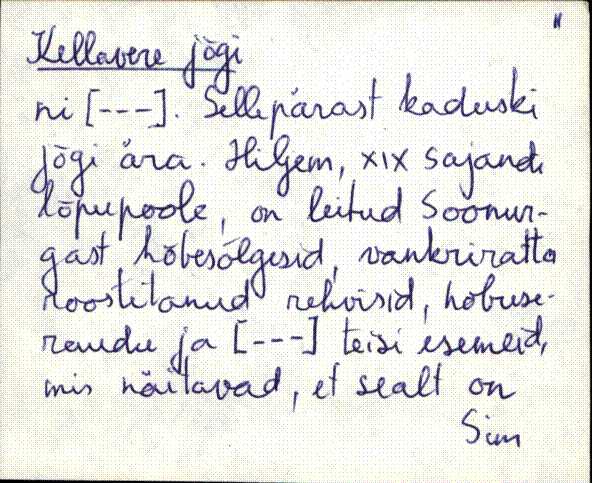 II
Kellavere jõgi
ni [---]. Sellepärast kaduski
jõgi ära. Hiljem, XIX sajandi
lõpupoole, on leitud Soonur-
gast hõbesõlgesid, vankriratta
roostetanud rehvisid, hobuse-
raudu ja [---] teisi esemeid,
mis näitavad, et sealt on
Sim